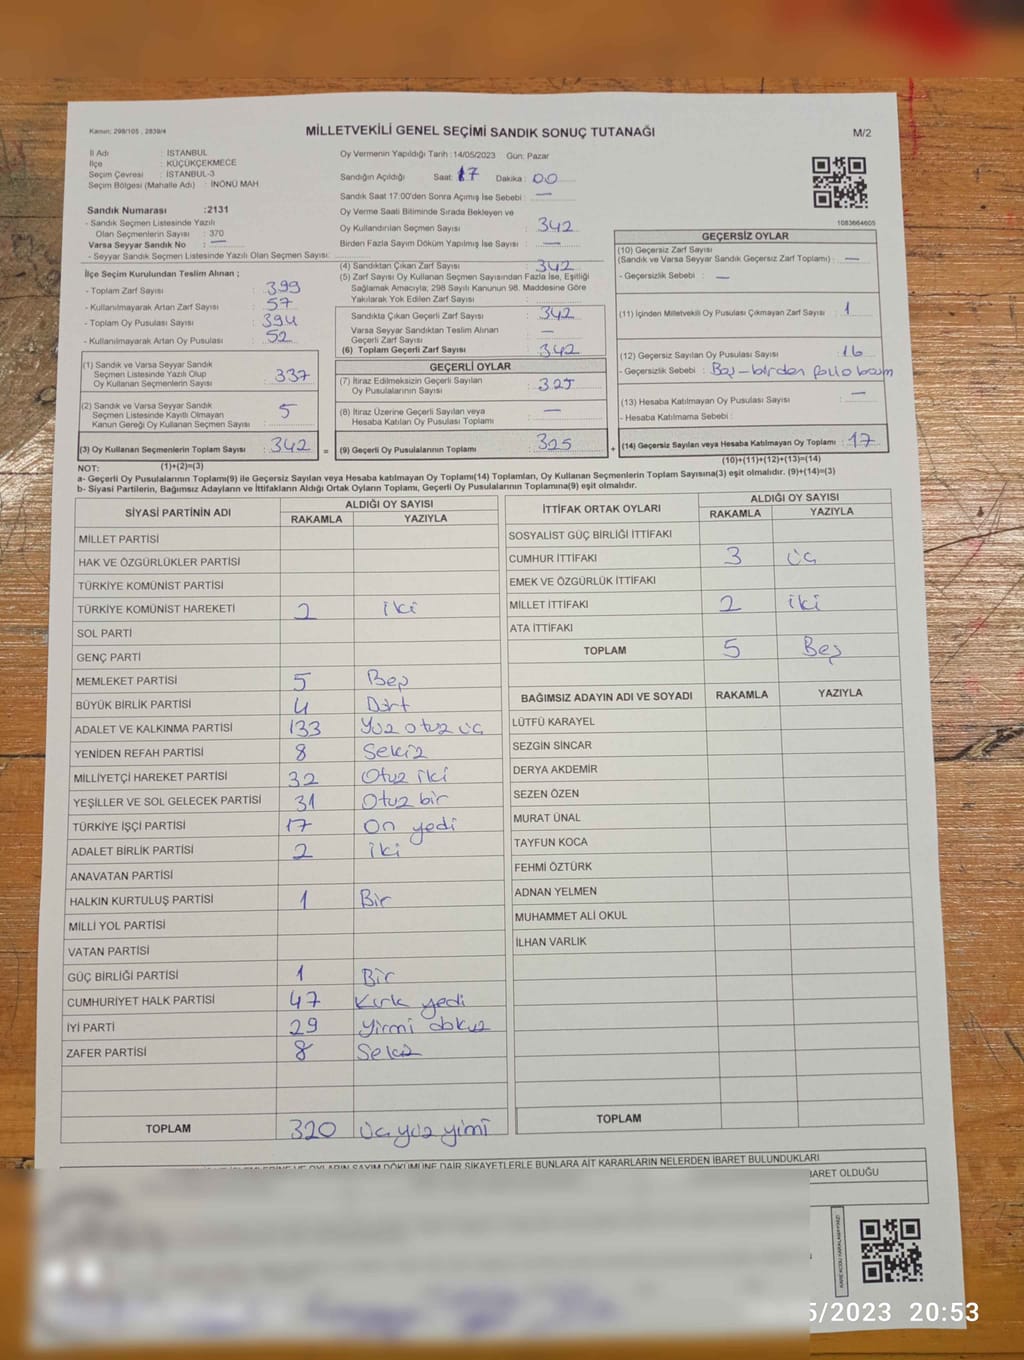 Kanun: 298/105 , 2839/4
MİLLETVEKİLİ GENEL SEÇİMİ SANDIK SONUÇ TUTANAĞI
M/2
İl Adı : İSTANBUL
İlçe : KÜÇÜKÇEKMECE
Seçim Çevresi : İSTANBUL-3
Seçim Bölgesi (Mahalle Adı) : İNÖNÜ MAH
Sandık Numarası :2131
- Sandık Seçmen Listesinde Yazılı
Olan Seçmenlerin Sayısı : 370
Varsa Seyyar Sandık No : —
- Seyyar Sandık Seçmen Listesinde Yazılı Olan Seçmen Sayısı:
Oy Vermenin Yapıldığı Tarih :14/05/2023 Gün: Pazar
Sandığın Açıldığı Saat: 17 Dakika : 00
Sandık Saat 17:00'den Sonra Açılmış İse Sebebi : —
Oy Verme Saati Bitiminde Sırada Bekleyen ve
Oy Kullandırılan Seçmen Sayısı : 342
Birden Fazla Sayım Döküm Yapılmış İse Sayısı : —
1083664605
İlçe Seçim Kurulundan Teslim Alınan ;
- Toplam Zarf Sayısı : 399
- Kullanılmayarak Artan Zarf Sayısı : 57
- Toplam Oy Pusulası Sayısı : 394
- Kullanılmayarak Artan Oy Pusulası : 52
(1) Sandık ve Varsa Seyyar Sandık
Seçmen Listesinde Yazılı Olup
Oy Kullanan Seçmenlerin Sayısı : 337
(2) Sandık ve Varsa Seyyar Sandık
Seçmen Listesinde Kayıtlı Olmayan
Kanun Gereği Oy Kullanan Seçmen Sayısı : 5
(3) Oy Kullanan Seçmenlerin Toplam Sayısı : 342 =
(1)+(2)=(3)
(4) Sandıktan Çıkan Zarf Sayısı : 342
(5) Zarf Sayısı Oy Kullanan Seçmen Sayısından Fazla İse, Eşitliği
Sağlamak Amacıyla; 298 Sayılı Kanunun 98. Maddesine Göre
Yakılarak Yok Edilen Zarf Sayısı :
Sandıkta Çıkan Geçerli Zarf Sayısı : 342
Varsa Seyyar Sandıktan Teslim Alınan
Geçerli Zarf Sayısı : —
(6) Toplam Geçerli Zarf Sayısı : 342
GEÇERLİ OYLAR
(7) İtiraz Edilmeksizin Geçerli Sayılan
Oy Pusulalarının Sayısı : 325
(8) İtiraz Üzerine Geçerli Sayılan veya
Hesaba Katılan Oy Pusulaları Toplamı : —
(9) Geçerli Oy Pusulalarının Toplamı : 325 +
GEÇERSİZ OYLAR
(10) Geçersiz Zarf Sayısı
(Sandık ve Varsa Seyyar Sandık Geçersiz Zarf Toplamı) : —
- Geçersizlik Sebebi : —
(11) İçinden Milletvekili Oy Pusulası Çıkmayan Zarf Sayısı : 1
(12) Geçersiz Sayılan Oy Pusulası Sayısı : 16
- Geçersizlik Sebebi : Boş-birden
(13) Hesaba Katılmayan Oy Pusulası Sayısı : —
- Hesaba Katılmama Sebebi :
(14) Geçersiz Sayılan veya Hesaba Katılmayan Oy Toplamı : 17
(10)+(11)+(12)+(13)=(14)
NOT:
a- Geçerli Oy Pusulalarının Toplamı(9) ile Geçersiz Sayılan veya Hesaba katılmayan Oy Toplamı(14) Toplamları, Oy Kullanan Seçmenlerin Toplam Sayısına(3) eşit olmalıdır. (9)+(14)=(3)
b- Siyasi Partilerin, Bağımsız Adayların ve İttifakların Aldığı Ortak Oyların Toplamı, Geçerli Oy Pusulalarının Toplamına(9) eşit olmalıdır.
SİYASİ PARTİNİN ADI
ALDIĞI OY SAYISI
RAKAMLA YAZIYLA
MİLLET PARTİSİ
HAK VE ÖZGÜRLÜKLER PARTİSİ
TÜRKİYE KOMÜNİST PARTİSİ
TÜRKİYE KOMÜNİST HAREKETİ 2 iki
SOL PARTİ
GENÇ PARTİ
MEMLEKET PARTİSİ 5 Beş
BÜYÜK BİRLİK PARTİSİ 4 Dört
ADALET VE KALKINMA PARTİSİ 133 Yüz otuz üç
YENİDEN REFAH PARTİSİ 8 Sekiz
MİLLİYETÇİ HAREKET PARTİSİ 32 Otuz iki
YEŞİLLER VE SOL GELECEK PARTİSİ 31 Otuz bir
TÜRKİYE İŞÇİ PARTİSİ 17 On yedi
ADALET BİRLİK PARTİSİ 2 iki
ANAVATAN PARTİSİ
HALKIN KURTULUŞ PARTİSİ 1 Bir
MİLLİ YOL PARTİSİ
VATAN PARTİSİ
GÜÇ BİRLİĞİ PARTİSİ 1 Bir
CUMHURİYET HALK PARTİSİ 47 Kırk yedi
İYİ PARTİ 29 yirmi dokuz
ZAFER PARTİSİ 8 Sekiz
TOPLAM 320 üç yüz yimi
İTTİFAK ORTAK OYLARI
ALDIĞI OY SAYISI
RAKAMLA YAZIYLA
SOSYALİST GÜÇ BİRLİĞİ İTTİFAKI
CUMHUR İTTİFAKI 3 üç
EMEK VE ÖZGÜRLÜK İTTİFAKI
MİLLET İTTİFAKI 2 iki
ATA İTTİFAKI
TOPLAM 5 Beş
BAĞIMSIZ ADAYIN ADI VE SOYADI RAKAMLA YAZIYLA
LÜTFÜ KARAYEL
SEZGİN SİNCAR
DERYA AKDEMİR
SEZEN ÖZEN
MURAT ÜNAL
TAYFUN KOCA
FEHMİ ÖZTÜRK
ADNAN YELMEN
MUHAMMET ALİ OKUL
İLHAN VARLIK
TOPLAM
OYLARIN SAYIM DÖKÜMÜNE DAİR ŞİKAYETLERLE BUNLARA AİT KARARLARIN NELERDEN İBARET BULUNDUKLARI
BARET OLDUĞU
5/2023 20:53